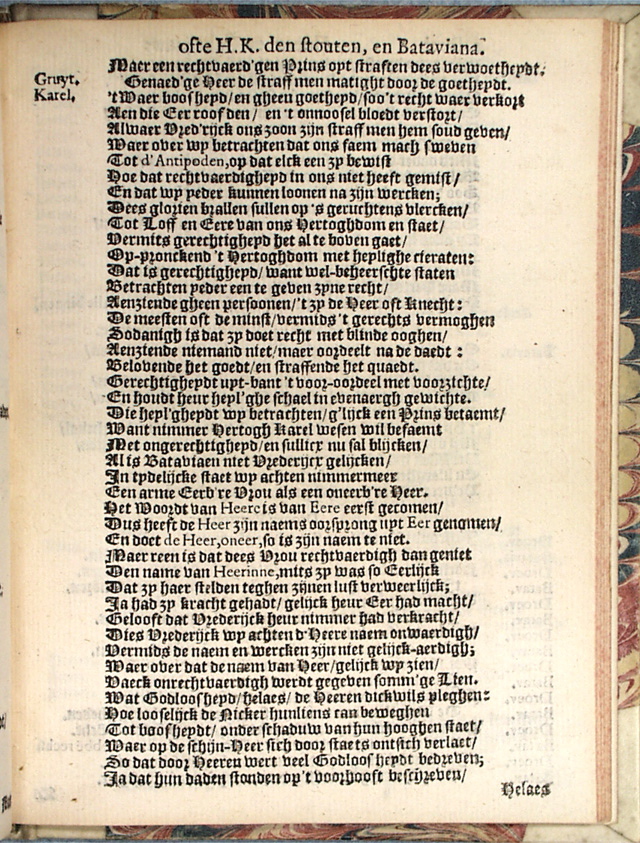 ofte H.K. den stouten, en Bataviana.
Maer een rechtvaerd'gen Prins opt straffen dees verwoetheydt,
Gruyt. Genaed'ge Heer de straff men matight door de goetheydt.
Karel. 't Waer boosheyd/en gheen goetheyd/soo't recht waer verkort
Aen die Eer roofden/ en 't onnoosel bloedt verstort/
Alwaer Vred'rijck ons zoon zijn straff men hem soud geven/
Maer over wy betrachten dat ons faem mach sweven
Tot d'Antipoden, op dat elck een zy bewist
Hoe dat rechtvaerdigheyd in ons niet heeft gemist/
En dat wy yeder kunnen loonen na zijn wercken;
Dees glorien brallen sullen op 's geruchtens vlercken/
Tot Loff en Eere van ons Hertoghdom en staet/
Vermits gerechtigheyd het al te boven gaet/
Op-pronckend 't Hertoghdom met heylighe cieraten:
Dat is gerechtigheyd/ want wel-beheerschte staten
Betrachten yeder een te geven zyne recht/
Aenziende gheen persoonen/'t zy de Heer oft Knecht:
De meesten oft de minst/vermids 't gerechts vermoghen
Sodanigh is dat zy doet recht met blinde ooghen/
Aenziende niemand niet/maer oordeelt na de daedt:
Belovende het goedt/en straffende het quaedt.
Gerechtigheydt uyt-bant 't voor-oordeel met voorzichte/
En houdt heur heyl'ghe schael in evenaergh gewichte.
Die heyl'gheydt wy betrachten/g'lijck een Prins betaemt/
Want nimmer Hertogh Karel wesen wil befaemt
Met ongerechtigheyd/en sullicx nu sal blijcken/
Al is Bataviaen niet Vrederijcx gelijcken/
In tydelijcke staet wy achten nimmermeer
Een arme Eerb're Vrou als een oneerb're Heer.
Het Woordt van Heere is van Eere eerst gecomen/
Dus heeft de Heer zijn naems oorsprong uyt Eer genomen/
En doet de Heer, oneer, so is zijn naem te niet.
Maer reen is dat dees Vrou rechtvaerdigh dan geniet
Den name van Heerinne, mits zy was so Eerlijck
Dat zy haer stelden teghen zijnen lust verweerlijck;
Ja had zy kracht gehadt/ gelijck heur Eer had macht/
Gelooft dat Vrederijck heur nimmer had verkracht/
Dies Vrederijck wy achten d'Heere naem onwaerdigh/
Vermids de naem en wercken zijn niet gelijck-aerdigh;
Maer over dat de naem van Heer/gelijck wy zien/
Vaeck onrechtvaerdigh werdt gegeven somm'ge Lien.
Wat Godloosheyd/helaes/ de Heeren dickwils pleghen:
Hoe looselijck de Nicker hunliens can beweghen
Tot boosheydt/ onder schaduw van hun hooghen staet/
Maer op de schijn-Heer sich door staets ontsich verlaet/
So dat door Heeren wert veel Godloosheydt bedreven;
Ja dat hun daden stonden op 't voorhooft beschreven/
Helaes